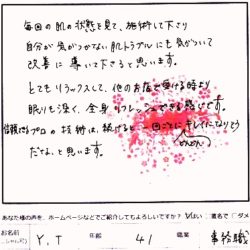 毎回の肌の状態を見て、施術して下さり
自分が気がつかない肌トラブルにも気がついて
改善に導いて下さると思います。
とてもリラックスして、他のお店で受ける時より
眠りも深く、全身リフレッシュできる感じです。
信頼できるプロの技術は、続けると一回ごとにキレイになりそう
どんどん
だなぁと思います。
あなた様の声を、ホームページなどでご紹介してもよろしいですか？ はい 匿名で ダメ
お名前 Y.T 年齢 41 職業 事務職
(イニシャル可)